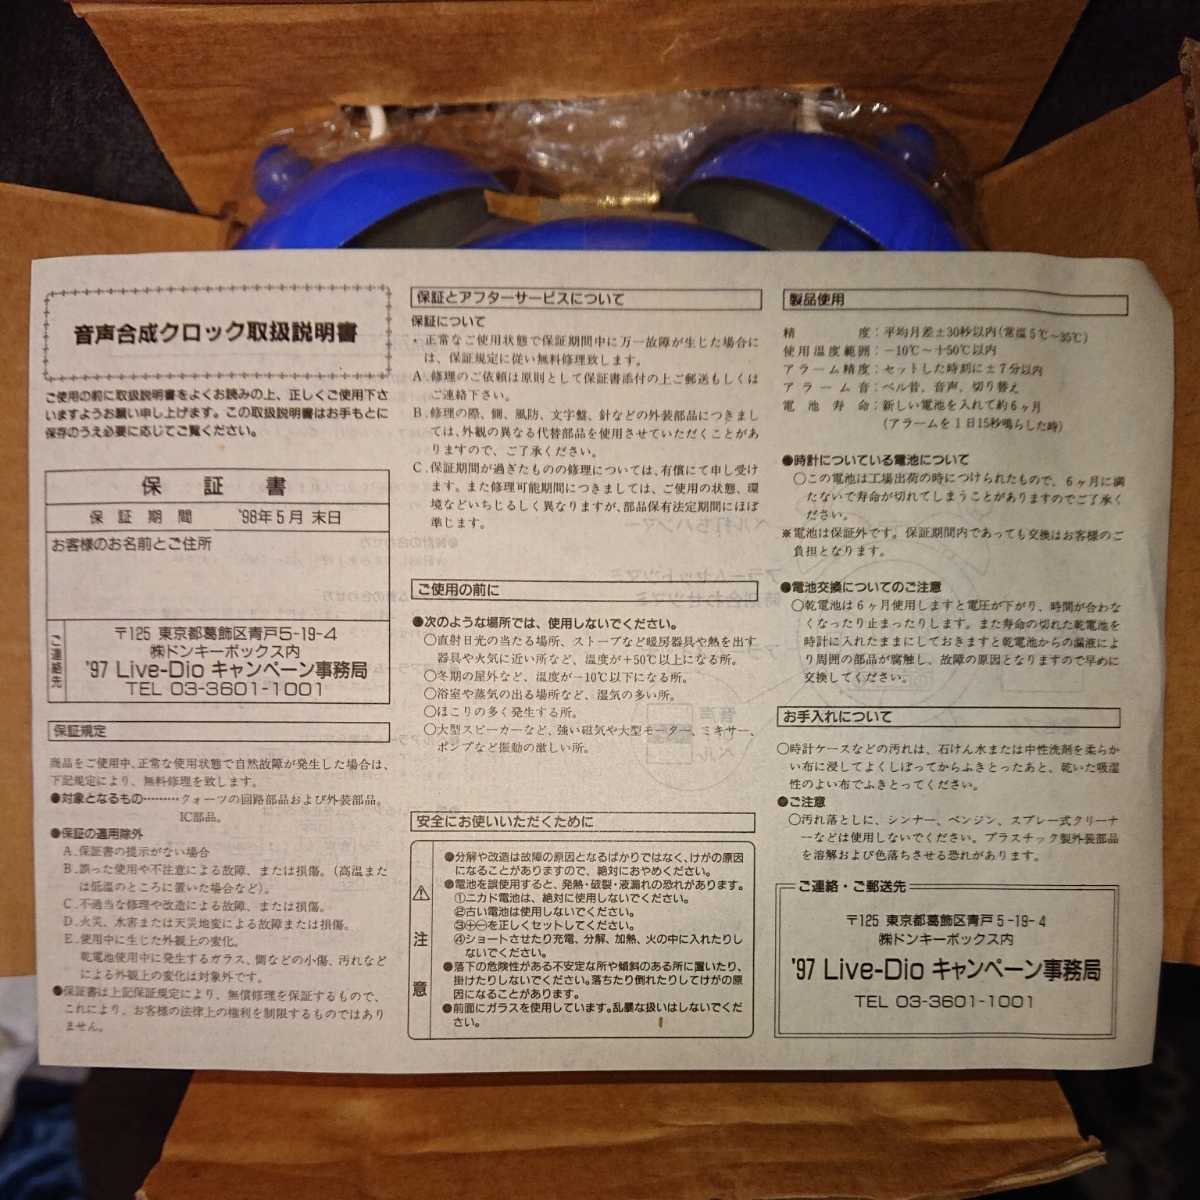 音声合成クロック取扱説明書
ご使用の前に取扱説明書をよくお読みの上、正しくご使用下さ
いますようお願い申し上げます。この取扱説明書はお手もとに
保存のうえ必要に応じてご覧ください。
保証書
保証期間 '98年5月 末日
お客様のお名前とご住所
ご連絡先
〒125 東京都葛飾区青戸5-19-4
㈱ドンキーボックス内
'97 Live-Dio キャンペーン事務局
TEL 03-3601-1001
保証規定
商品をご使用中、正常な使用状態で自然故障が発生した場合は、
下記規定により、無料修理を致します。
●対象となるもの………クォーツの回路部品および外装部品。
IC部品。
●保証の適用除外
A.保証書の提示がない場合
B.誤った使用や不注意による故障、または損傷。(高温また
は低温のところに置いた場合など)。
C.不適当な修理や改造による故障、または損傷。
D.火災、水害または天災地変による故障または損傷。
E.使用中に生じた外観上の変化。
乾電池使用中に発生するガラス、側などの小傷、汚れなど
による外観上の変化は対象外です。
●保証書は上記保証規定により、無償修理を保証するもので、
これにより、お客様の法律上の権利を制限するものではあり
ません。
保証とアフターサービスについて
保証について
・正常なご使用状態で保証期間中に万一故障が生じた場合に
は、保証規定に従い無料修理致します。
A.修理のご依頼は原則として保証書添付の上ご郵送もしくは
ご連絡下さい。
B.修理の際、側、風防、文字盤、針などの外装部品につきまし
ては、外観の異なる代替部品を使用させていただくことがあ
りますので、ご了承ください。
C.保証期間が過ぎたものの修理については、有償にて申し受け
ます。また修理可能期間につきましては、ご使用の状態、環
境などいちじるしく異なりますが、部品保有法定期間にほぼ
準じます。
ご使用の前に
●次のような場所では、使用しないでください。
○直射日光の当たる場所、ストーブなど暖房器具や熱を出す
器具や火気に近い所など、温度が+50℃以上になる所。
○冬期の屋外など、温度が-10℃以下になる所。
○浴室や蒸気の出る場所など、湿気の多い所。
○ほこりの多く発生する所。
○大型スピーカーなど、強い磁気や大型モーター、ミキサー、
ポンプなど振動の激しい所。
安全にお使いいただくために
⚠注意
●分解や改造は故障の原因となるばかりではなく、けがの原因
になることがありますので、絶対におやめください。
●電池を誤使用すると、発熱・破裂・液漏れの恐れがあります。
①ニカド電池は、絶対に使用しないでください。
②古い電池は使用しないでください。
③⊕⊖を正しくセットしてください。
④ショートさせたり充電、分解、加熱、火の中に入れたりし
ないでください。
●落下の危険性がある不安定な所や傾斜のある所に置いたり、
掛けたりしないでください。落ちたり倒れたりしてけがの原
因になることがあります。
●前面にガラスを使用しています。乱暴な扱いはしないでくだ
さい。
製品使用
精度:平均月差±30秒以内(常温5℃~35℃)
使用温度範囲:-10℃~+50℃以内
アラーム精度:セットした時刻に±7分以内
アラーム音:ベル音、音声、切り替え
電池寿命:新しい電池を入れて約6ヶ月
(アラームを1日15秒鳴らした時)
●時計についている電池について
○この電池は工場出荷の時につけられたもので、6ヶ月に満
たないで寿命が切れてしまうことがありますのでご了承く
ださい。
※電池は保証外です。保証期間内であっても交換はお客様のご
負担となります。
●電池交換についてのご注意
○乾電池は6ヶ月使用しますと電圧が下がり、時間が合わな
くなったり止まったりします。また寿命の切れた乾電池を
時計に入れたままにしておきますと乾電池からの漏液によ
り周囲の部品が腐触し、故障の原因となりますので早めに
交換してください。
お手入れについて
○時計ケースなどの汚れは、石けん水または中性洗剤を柔らか
い布に浸してよくしぼってからふきとったあと、乾いた吸湿
性のよい布でふきとってください。
●ご注意
○汚れ落としに、シンナー、ベンジン、スプレー式クリーナ
ーなどは使用しないでください。プラスチック製外装部品
を溶解および色落ちさせる恐れがあります。
ご連絡・ご郵送先
〒125 東京都葛飾区青戸5-19-4
㈱ドンキーボックス内
'97 Live-Dio キャンペーン事務局
TEL 03-3601-1001